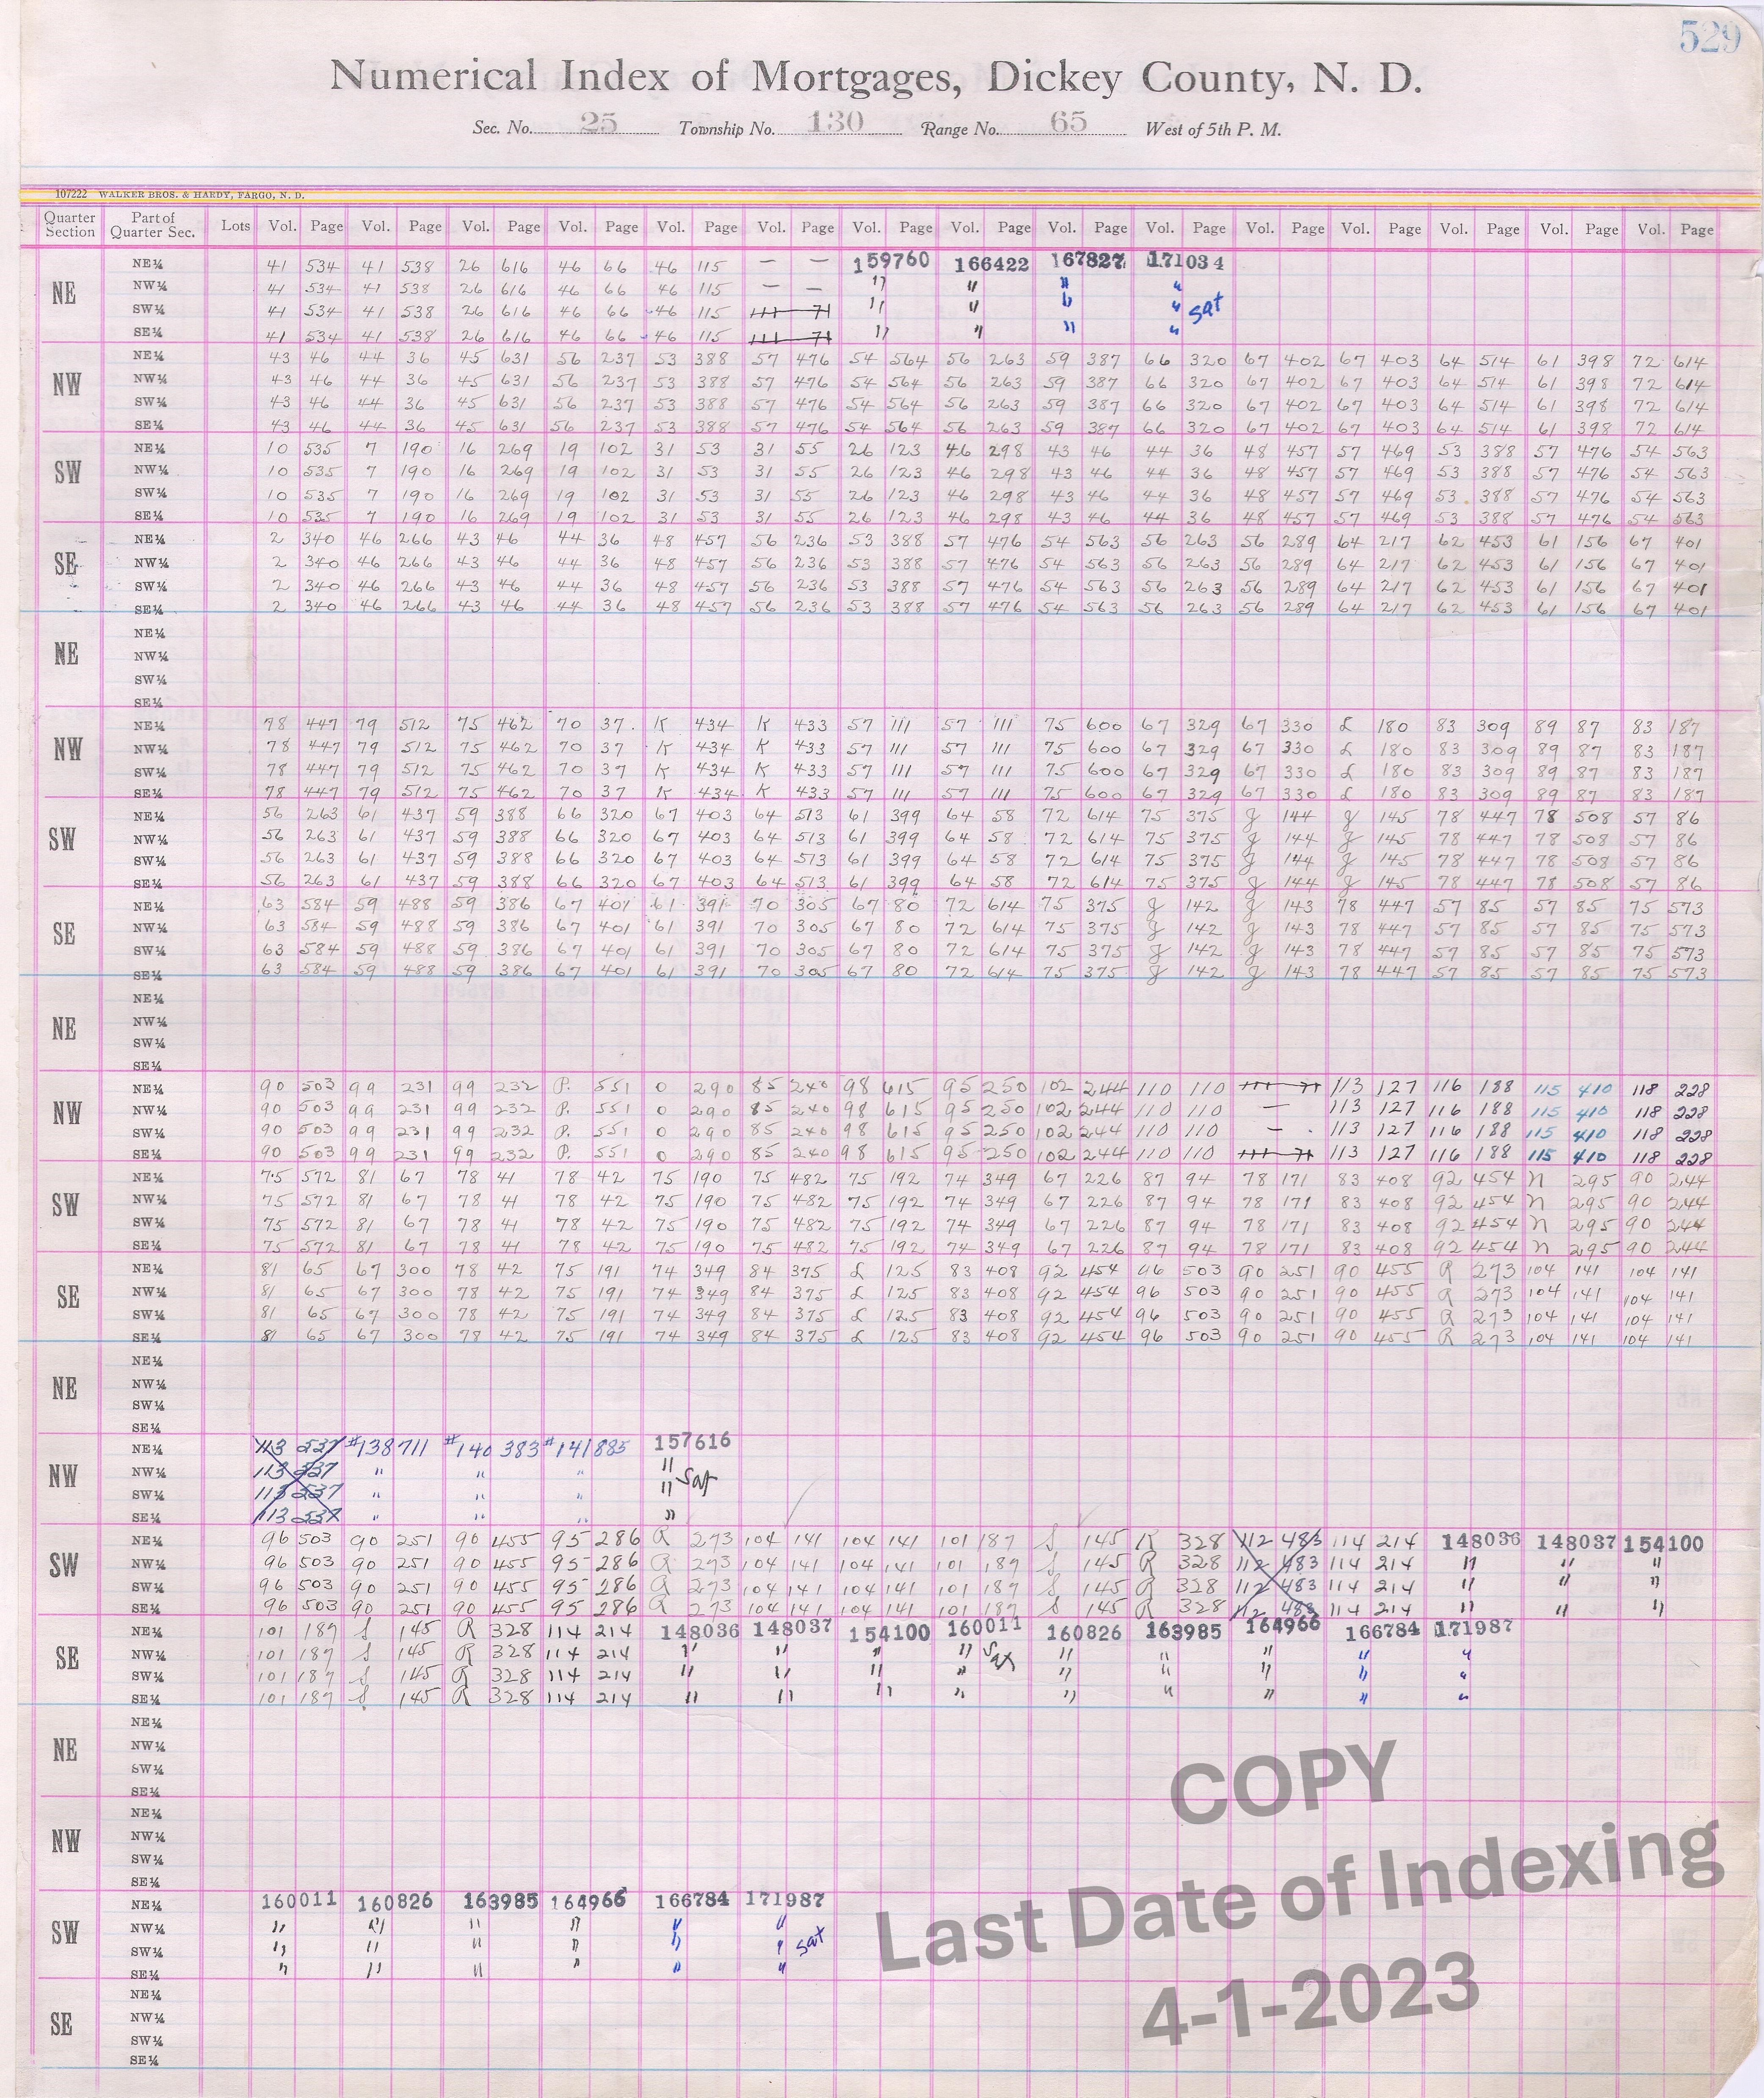 529
Numerical Index of Mortgages, Dickey County, N. D.
Sec. No. 25 Township No. 130 Range No. 65 West of 5th P. M.
107222 WALKER BROS. & HARDY, FARGO, N. D.
Quarter Section Part of Quarter Sec. Lots Vol. Page Vol. Page Vol. Page Vol. Page Vol. Page Vol. Page Vol. Page Vol. Page Vol. Page Vol. Page Vol. Page Vol. Page Vol. Page Vol. Page Vol. Page
NE
NE¼ 41 534 41 538 26 616 46 66 46 115 — — 159760 166422 167827 171034
NW¼ 41 534 41 538 26 616 46 66 46 115 — — " " " "
SW¼ 41 534 41 538 26 616 46 66 46 115 111 71 " " " " Sat
SE¼ 41 534 41 538 26 616 46 66 46 115 111 71 " " " "
NW
NE¼ 43 46 44 36 45 631 56 237 53 388 57 476 54 564 56 263 59 387 66 320 67 402 67 403 64 514 61 398 72 614
NW¼ 43 46 44 36 45 631 56 237 53 388 57 476 54 564 56 263 59 387 66 320 67 402 67 403 64 514 61 398 72 614
SW¼ 43 46 44 36 45 631 56 237 53 388 57 476 54 564 56 263 59 387 66 320 67 402 67 403 64 514 61 398 72 614
SE¼ 43 46 44 36 45 631 56 237 53 388 57 476 54 564 56 263 59 387 66 320 67 402 67 403 64 514 61 398 72 614
SW
NE¼ 10 535 7 190 16 269 19 102 31 53 31 55 26 123 46 298 43 46 44 36 48 457 57 469 53 388 57 476 54 563
NW¼ 10 535 7 190 16 269 19 102 31 53 31 55 26 123 46 298 43 46 44 36 48 457 57 469 53 388 57 476 54 563
SW¼ 10 535 7 190 16 269 19 102 31 53 31 55 26 123 46 298 43 46 44 36 48 457 57 469 53 388 57 476 54 563
SE¼ 10 535 7 190 16 269 19 102 31 53 31 55 26 123 46 298 43 46 44 36 48 457 57 469 53 388 57 476 54 563
SE
NE¼ 2 340 46 266 43 46 44 36 48 457 56 236 53 388 57 476 54 563 56 263 56 289 64 217 62 453 61 156 67 401
NW¼ 2 340 46 266 43 46 44 36 48 457 56 236 53 388 57 476 54 563 56 263 56 289 64 217 62 453 61 156 67 401
SW¼ 2 340 46 266 43 46 44 36 48 457 56 236 53 388 57 476 54 563 56 263 56 289 64 217 62 453 61 156 67 401
SE¼ 2 340 46 266 43 46 44 36 48 457 56 236 53 388 57 476 54 563 56 263 56 289 64 217 62 453 61 156 67 401
NE
NE¼
NW¼
SW¼
SE¼
NW
NE¼ 78 447 79 512 75 462 70 37 K 434 K 433 57 111 57 111 75 600 67 329 67 330 L 180 83 309 89 87 83 187
NW¼ 78 447 79 512 75 462 70 37 K 434 K 433 57 111 57 111 75 600 67 329 67 330 L 180 83 309 89 87 83 187
SW¼ 78 447 79 512 75 462 70 37 K 434 K 433 57 111 57 111 75 600 67 329 67 330 L 180 83 309 89 87 83 187
SE¼ 78 447 79 512 75 462 70 37 K 434 K 433 57 111 57 111 75 600 67 329 67 330 L 180 83 309 89 87 83 187
SW
NE¼ 56 263 61 437 59 388 66 320 67 403 64 513 61 399 64 58 72 614 75 375 J 144 J 145 78 447 78 508 57 86
NW¼ 56 263 61 437 59 388 66 320 67 403 64 513 61 399 64 58 72 614 75 375 J 144 J 145 78 447 78 508 57 86
SW¼ 56 263 61 437 59 388 66 320 67 403 64 513 61 399 64 58 72 614 75 375 J 144 J 145 78 447 78 508 57 86
SE¼ 56 263 61 437 59 388 66 320 67 403 64 513 61 399 64 58 72 614 75 375 J 144 J 145 78 447 78 508 57 86
SE
NE¼ 63 584 59 488 59 386 67 401 61 391 70 305 67 80 72 614 75 375 J 142 J 143 78 447 57 85 57 85 75 573
NW¼ 63 584 59 488 59 386 67 401 61 391 70 305 67 80 72 614 75 375 J 142 J 143 78 447 57 85 57 85 75 573
SW¼ 63 584 59 488 59 386 67 401 61 391 70 305 67 80 72 614 75 375 J 142 J 143 78 447 57 85 57 85 75 573
SE¼ 63 584 59 488 59 386 67 401 61 391 70 305 67 80 72 614 75 375 J 142 J 143 78 447 57 85 57 85 75 573
NE
NE¼
NW¼
SW¼
SE¼
NW
NE¼ 90 503 99 231 99 232 P. 551 O 290 85 240 98 615 95 250 102 244 110 110 111 71 113 127 116 188 115 410 118 228
NW¼ 90 503 99 231 99 232 P. 551 O 290 85 240 98 615 95 250 102 244 110 110 — 113 127 116 188 115 410 118 228
SW¼ 90 503 99 231 99 232 P. 551 O 290 85 240 98 615 95 250 102 244 110 110 — 113 127 116 188 115 410 118 228
SE¼ 90 503 99 231 99 232 P. 551 O 290 85 240 98 615 95 250 102 244 110 110 111 71 113 127 116 188 115 410 118 228
SW
NE¼ 75 572 81 67 78 41 78 42 75 190 75 482 75 192 74 349 67 226 87 94 78 171 83 408 92 454 N 295 90 244
NW¼ 75 572 81 67 78 41 78 42 75 190 75 482 75 192 74 349 67 226 87 94 78 171 83 408 92 454 N 295 90 244
SW¼ 75 572 81 67 78 41 78 42 75 190 75 482 75 192 74 349 67 226 87 94 78 171 83 408 92 454 N 295 90 244
SE¼ 75 572 81 67 78 41 78 42 75 190 75 482 75 192 74 349 67 226 87 94 78 171 83 408 92 454 N 295 90 244
SE
NE¼ 81 65 67 300 78 42 75 191 74 349 84 375 L 125 83 408 92 454 96 503 90 251 90 455 R 273 104 141 104 141
NW¼ 81 65 67 300 78 42 75 191 74 349 84 375 L 125 83 408 92 454 96 503 90 251 90 455 R 273 104 141 104 141
SW¼ 81 65 67 300 78 42 75 191 74 349 84 375 L 125 83 408 92 454 96 503 90 251 90 455 R 273 104 141 104 141
SE¼ 81 65 67 300 78 42 75 191 74 349 84 375 L 125 83 408 92 454 96 503 90 251 90 455 R 273 104 141 104 141
NE
NE¼
NW¼
SW¼
SE¼
NW
NE¼ 113 537 #138711 #140383 #141885 157616
NW¼ 113 537 " " " " Sat
SW¼ 113 537 " " " "
SE¼ 113 537 " " " "
SW
NE¼ 96 503 90 251 90 455 95 286 R 273 104 141 104 141 101 187 S 145 R 328 112 483 114 214 148036 148037 154100
NW¼ 96 503 90 251 90 455 95 286 R 273 104 141 104 141 101 187 S 145 R 328 112 483 114 214 " " "
SW¼ 96 503 90 251 90 455 95 286 R 273 104 141 104 141 101 187 S 145 R 328 112 483 114 214 " " "
SE¼ 96 503 90 251 90 455 95 286 R 273 104 141 104 141 101 187 S 145 R 328 112 483 114 214 " " "
SE
NE¼ 101 187 S 145 R 328 114 214 148036 148037 154100 160011 160826 163985 164966 166784 171987
NW¼ 101 187 S 145 R 328 114 214 " " " " Sat " " " " "
SW¼ 101 187 S 145 R 328 114 214 " " " " " " " " "
SE¼ 101 187 S 145 R 328 114 214 " " " " " " " " "
NE
NE¼
NW¼
SW¼
SE¼
NW
NE¼
NW¼
SW¼
SE¼
SW
NE¼ 160011 160826 163985 164966 166784 171987
NW¼ " " " " " "
SW¼ " " " " " " Sat
SE¼ " " " " " "
SE
NE¼
NW¼
SW¼
SE¼
COPY
Last Date of Indexing
4-1-2023